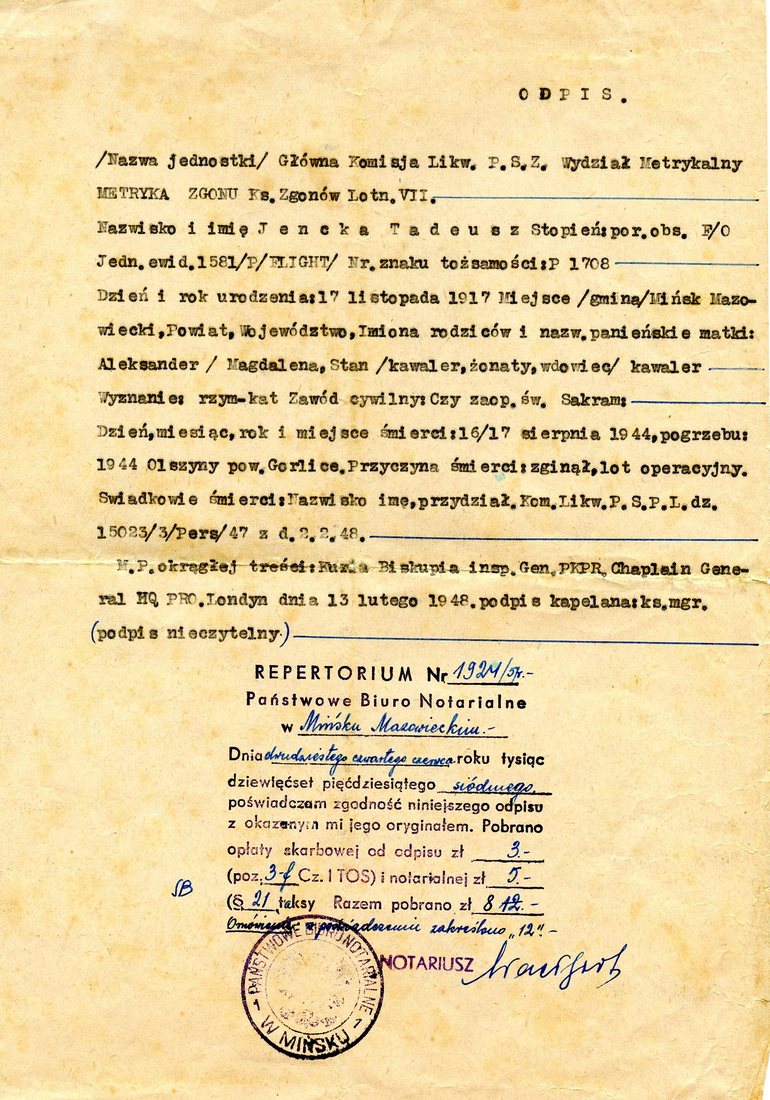 ODPIS.
/Nazwa jednostki/ Główna Komisja Likw. P.S.Z. Wydział Metrykalny
METRYKA ZGONU Ks.Zgonów Lotn.VII.
Nazwisko i imię Jencka Tadeusz Stopień:por.obs. F/O
Jedn.ewid.1581/P/FLIGHT/ Nr.znaku tożsamości:P 1708
Dzień i rok urodzenia:17 listopada 1917 Miejsce /gmina/Mińsk Mazo-
wiecki,Powiat,Województwo,Imiona rodziców i nazw.panieńskie matki:
Aleksander / Magdalena,Stan /kawaler,żonaty,wdowiec/ kawaler
Wyznanie: rzym-kat Zawód cywilny:Czy zaop.św. Sakram:
Dzień,miesiąc,rok i miejsce śmierci:16/17 sierpnia 1944,pogrzebu:
1944 Olszyny pow.Gorlice.Przyczyna śmierci:zginął,lot operacyjny.
Swiadkowie śmierci:Nazwisko imę,przydział.Kom.Likw.P.S.P.L.dz.
15023/3/Pers/47 z d.2.2.48.
M.P.okrągłej treści:Kuria Biskupia insp.Gen.PKPR.Chaplain Gene-
ral HQ PRC.Londyn dnia 13 lutego 1948.podpis kapelana:ks.mgr.
(podpis nieczytelny)
REPERTORIUM Nr 1924/57.-
Państwowe Biuro Notarialne
w Mińsku Mazowieckim.-
Dnia dwudziestego czwartego czerwca roku tysiąc
dziewięćset pięćdziesiątego siódmego,
poświadczam zgodność niniejszego odpisu
z okazanym mi jego oryginałem. Pobrano
opłaty skarbowej od odpisu zł 3.-
(poz. 3-f Cz. I TOS) i notarialnej zł 5.-
SB
(§ 21 taksy Razem pobrano zł 8 12.-
w poświadczeniu zakreślono "12".-
NOTARIUSZ
PAŃSTWOWE BIURO NOTARIALNE
W MIŃSKU
1